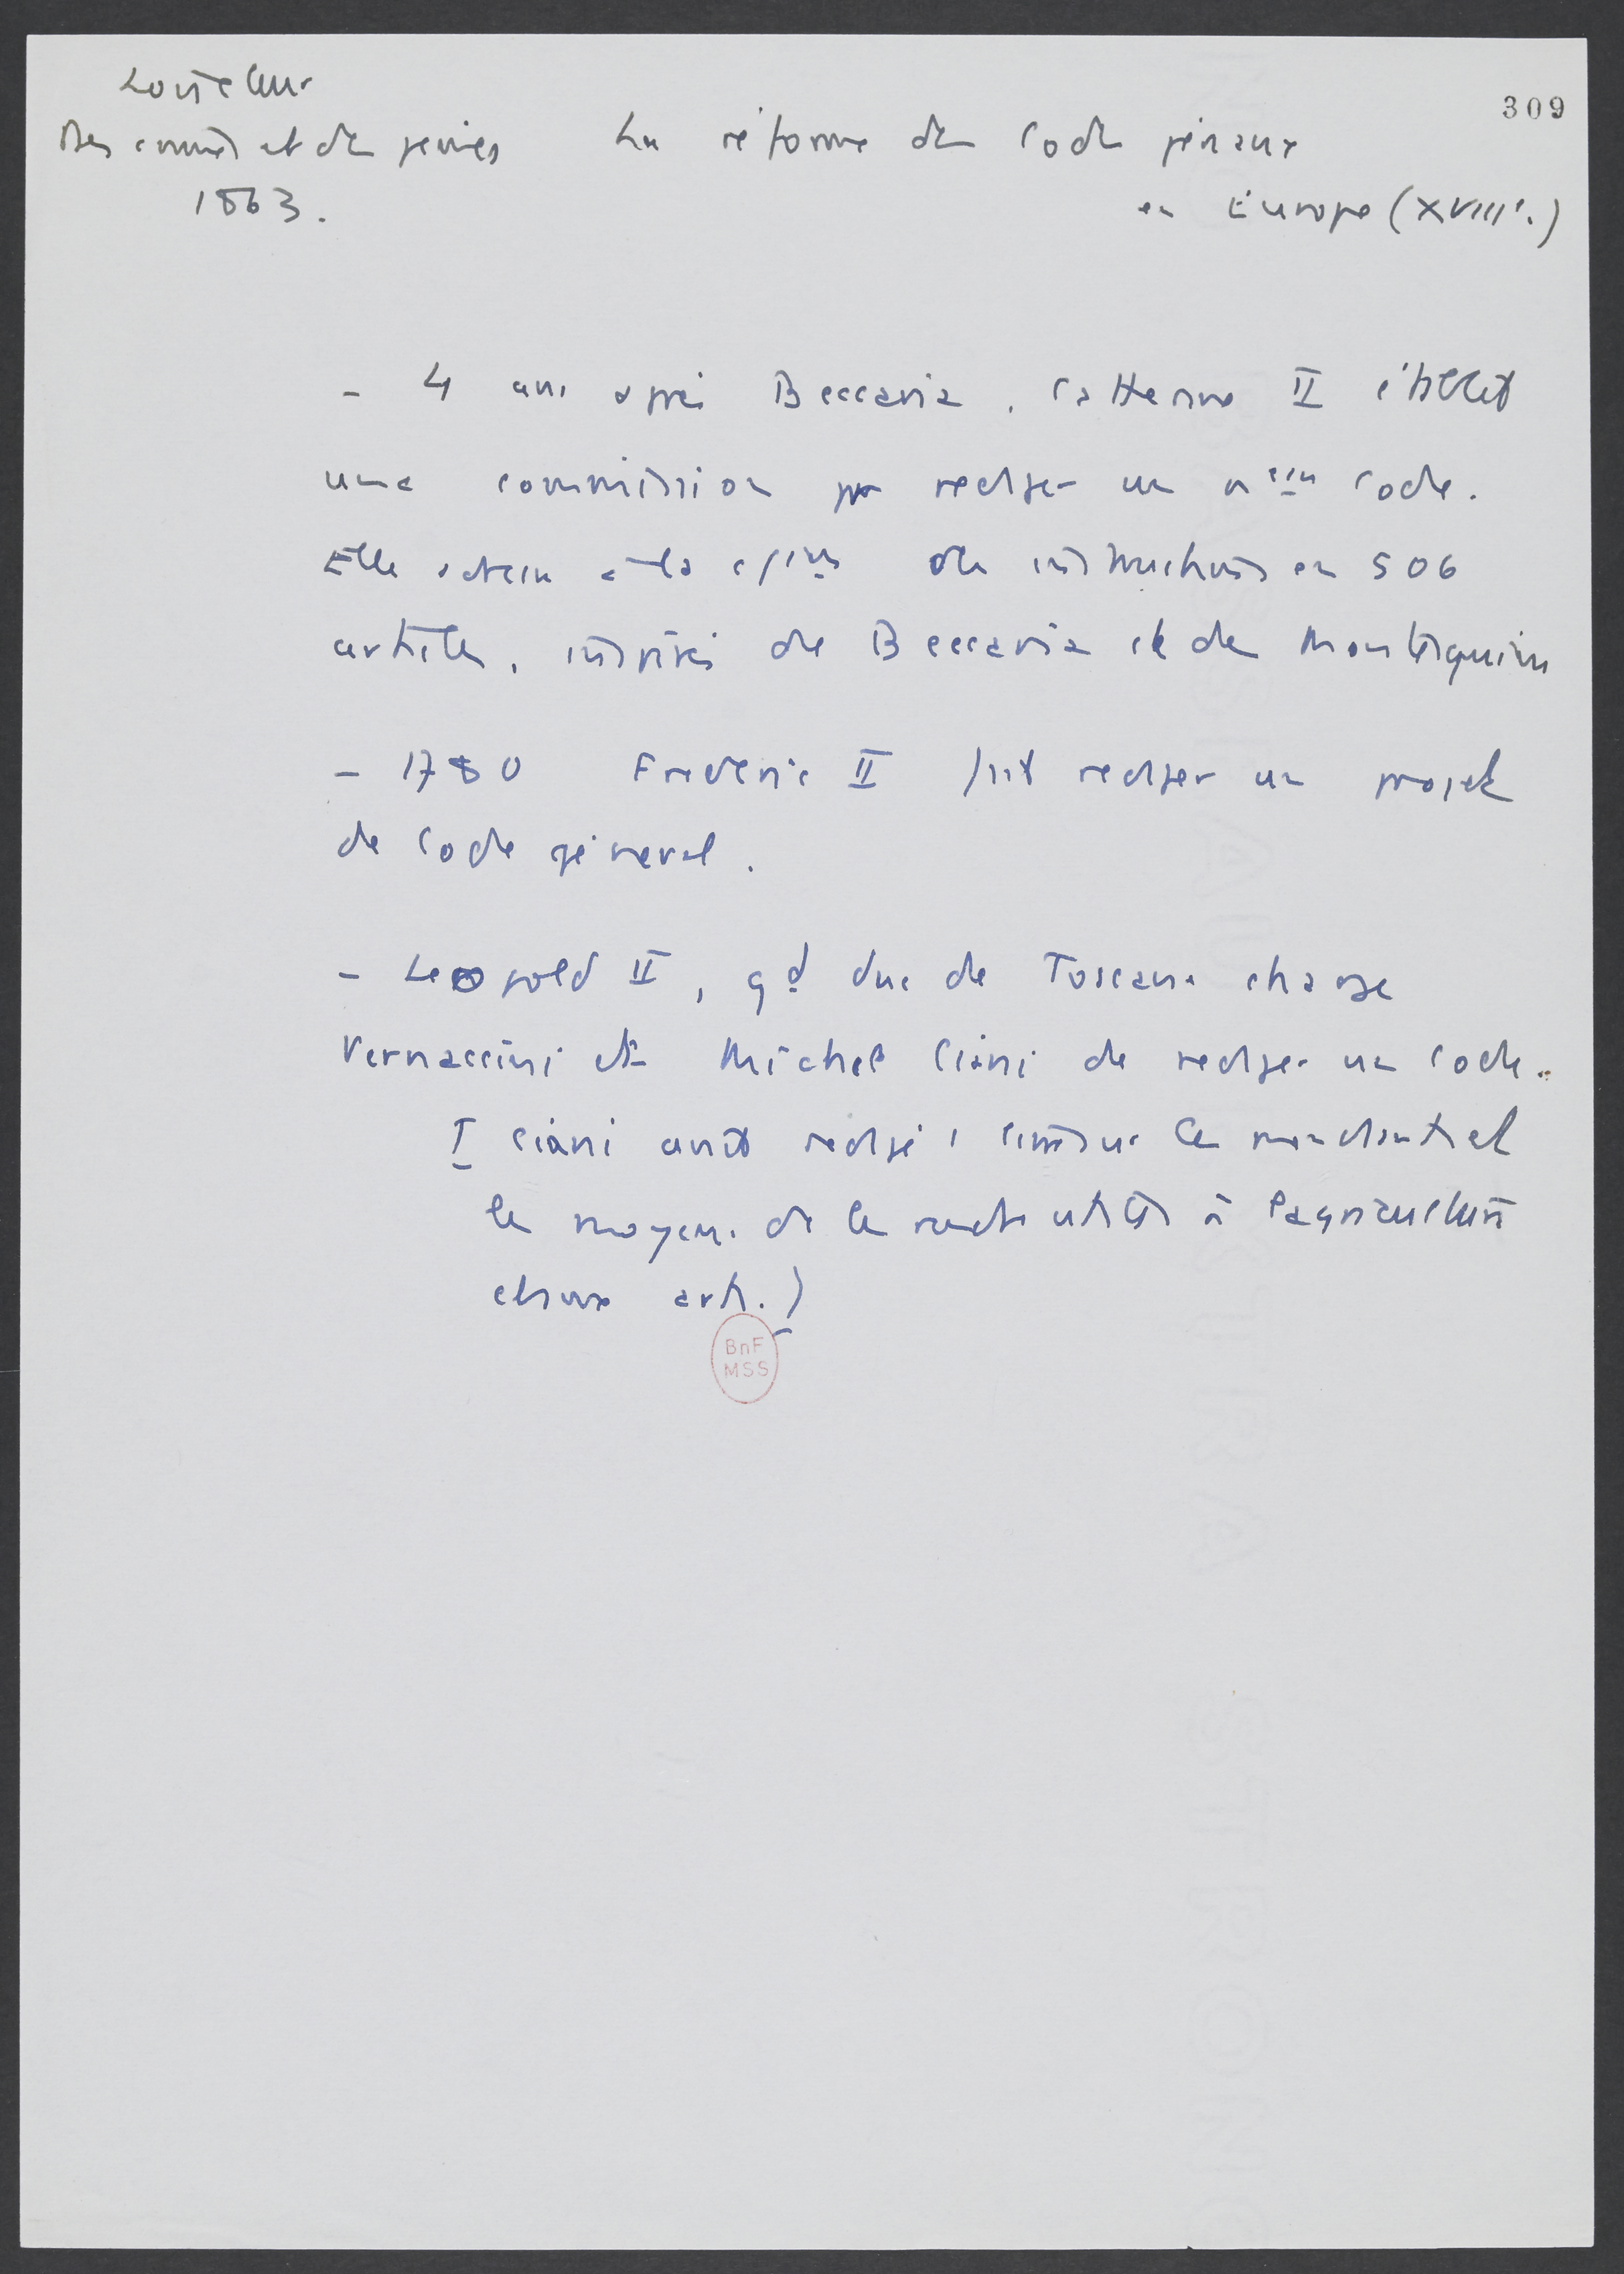 Loiseleur
309
Des crimes et des peines
La réforme des Codes pénaux
1863.
en Europe (XVIIIe.)
- 4 ans après Beccaria, Catherine II établit
une commission pr rediger un nveau Code.
Elle adresse à la des instructions en 506
articles, inspirés de Beccaria et de Montesquieu
- 1780 Frederic II fait rediger un projet
de Code général.
- Leopold II, gd duc de Toscane charge
Vernaccini et Michel Ciani de rediger un Code.
[ Ciani avait redigé la mendicité et
les moyens de les rendre utiles à l'agriculture
et aux arts.)
BnF
MSS